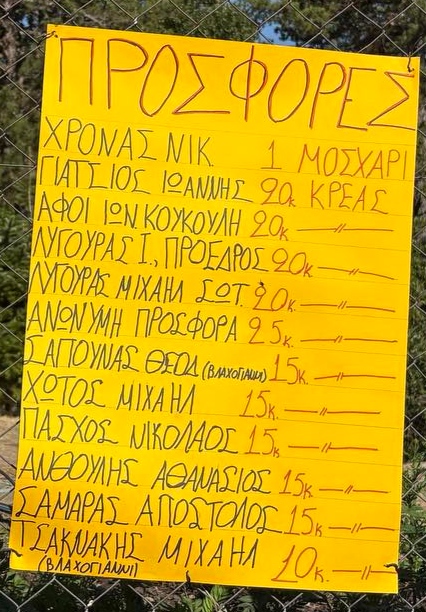 ΠΡΟΣΦΟΡΕΣ
ΧΡΟΝΑΣ ΝΙΚ 1 ΜΟΣΧΑΡΙ
ΓΙΑΤΣΙΟΣ ΙΩΑΝΝΗΣ 20κ ΚΡΕΑΣ
ΑΦΟΙ ΙΩΝ. ΚΟΥΚΟΥΛΗ 20κ —〃—
ΛΥΓΟΥΡΑΣ Ι., ΠΡΟΕΔΡΟΣ 20κ —〃—
ΛΥΓΟΥΡΑΣ ΜΙΧΑΗΛ ΣΩΤ. 20κ. —〃—
ΑΝΩΝΥΜΗ ΠΡΟΣΦΟΡΑ 25κ. —〃—
ΣΑΠΟΥΝΑΣ ΘΕΟΔ (ΒΛΑΧΟΓΙΑΝΝΙ) 15κ. —〃—
ΧΩΤΟΣ ΜΙΧΑΗΛ 15κ. —〃—
ΠΑΣΧΟΣ ΝΙΚΟΛΑΟΣ 15κ —〃—
ΑΝΘΟΥΛΗΣ ΑΘΑΝΑΣΙΟΣ 15κ —〃—
ΣΑΜΑΡΑΣ ΑΠΟΣΤΟΛΟΣ 15κ —〃—
ΤΣΑΚΝΑΚΗΣ ΜΙΧΑΗΛ 10κ. —〃—
(ΒΛΑΧΟΓΙΑΝΝΙ)